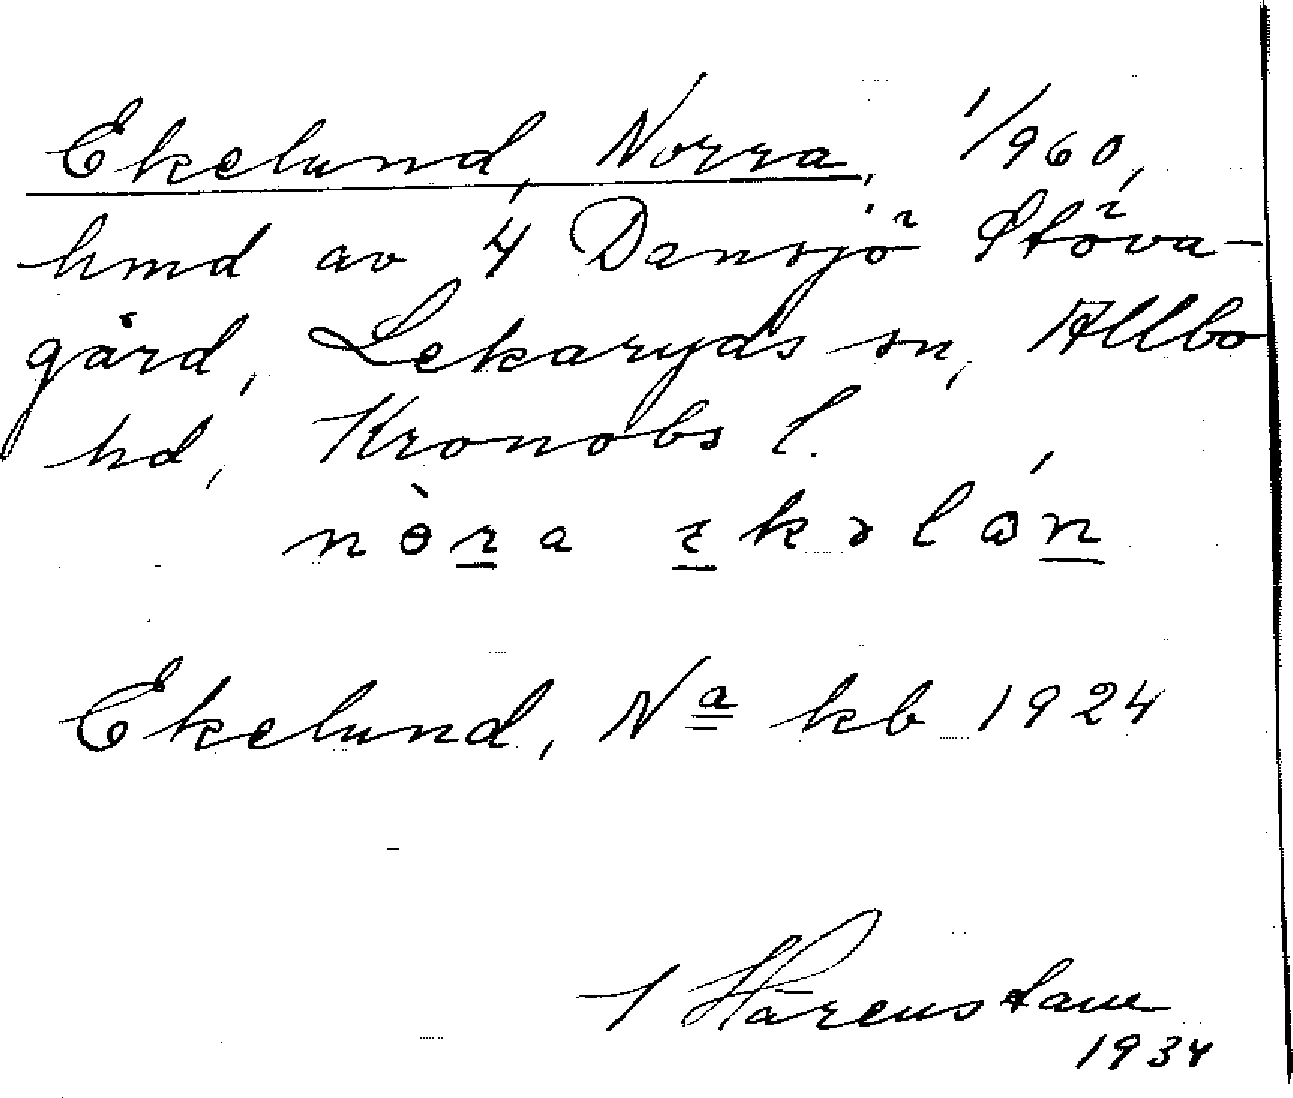 Ekelund, Norra, 1/960,
hmd av 4 Dansjö Stöva-
gård, Lekaryds sn, Allbo
hd, Kronobs l.
nòra ɛkəlón
Ekelund, Na kb 1924
Hårenstam
1934